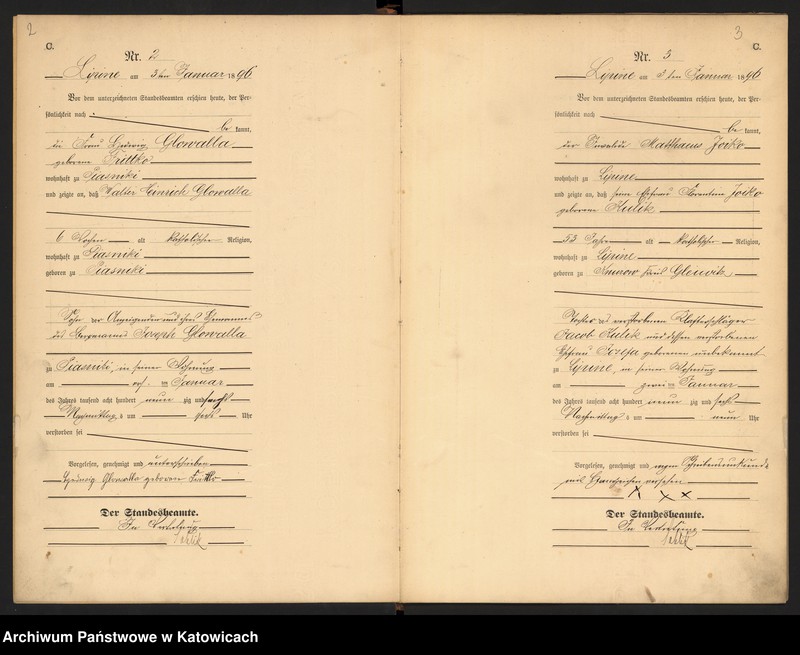 2
C.
Nr. 2
Lipine am 3ten Januar 1896
Vor dem unterzeichneten Standesbeamten erschien heute, der Per-
sönlichkeit nach
be kannt,
die Frau Hedwig Glowalla
geborene
wohnhaft zu Piasniki
und zeigte an, daß Walter Heinrich Glowalla
6 Wochen alt katholischer Religion,
wohnhaft zu Piasniki
geboren zu Piasniki
Sohn der Anzeigenden und ihres Ehemannes
des Bergmanns Joseph Glowalla
zu Piasniki, in seiner Wohnung
am Januar
des Jahres tausend acht hundert neun zig und sechs
Nachmittags um sechs Uhr
verstorben sei
Vorgelesen, genehmigt und unterschrieben
Hedwig Glowalla geborene
Der Standesbeamte.
In Vertretung
3
C.
Nr. 3
Lipine am 3ten Januar 1896
Vor dem unterzeichneten Standesbeamten erschien heute, der Per-
sönlichkeit nach
be kannt,
der Invalide Matthaeus Joiko
wohnhaft zu Lipine
und zeigte an, daß seine Ehefrau Florentine Joiko
geborene Kulik
53 Jahre alt katholischer Religion,
wohnhaft zu Lipine
geboren zu Kreis Gleiwitz
Tochter des verstorbenen Klafterschläger
Jacob Kulik und dessen verstorbenen
Ehefrau Josefa geborenen unbekannt
zu Lipine, in seiner Wohnung
am zwei ten Januar
des Jahres tausend acht hundert neun zig und sechs
Nachmittags um neun Uhr
verstorben sei
Vorgelesen, genehmigt und wegen Schreibensunkunde
mit Handzeichen versehen
X X X
Der Standesbeamte.
In Vertretung
Archiwum Państwowe w Katowicach